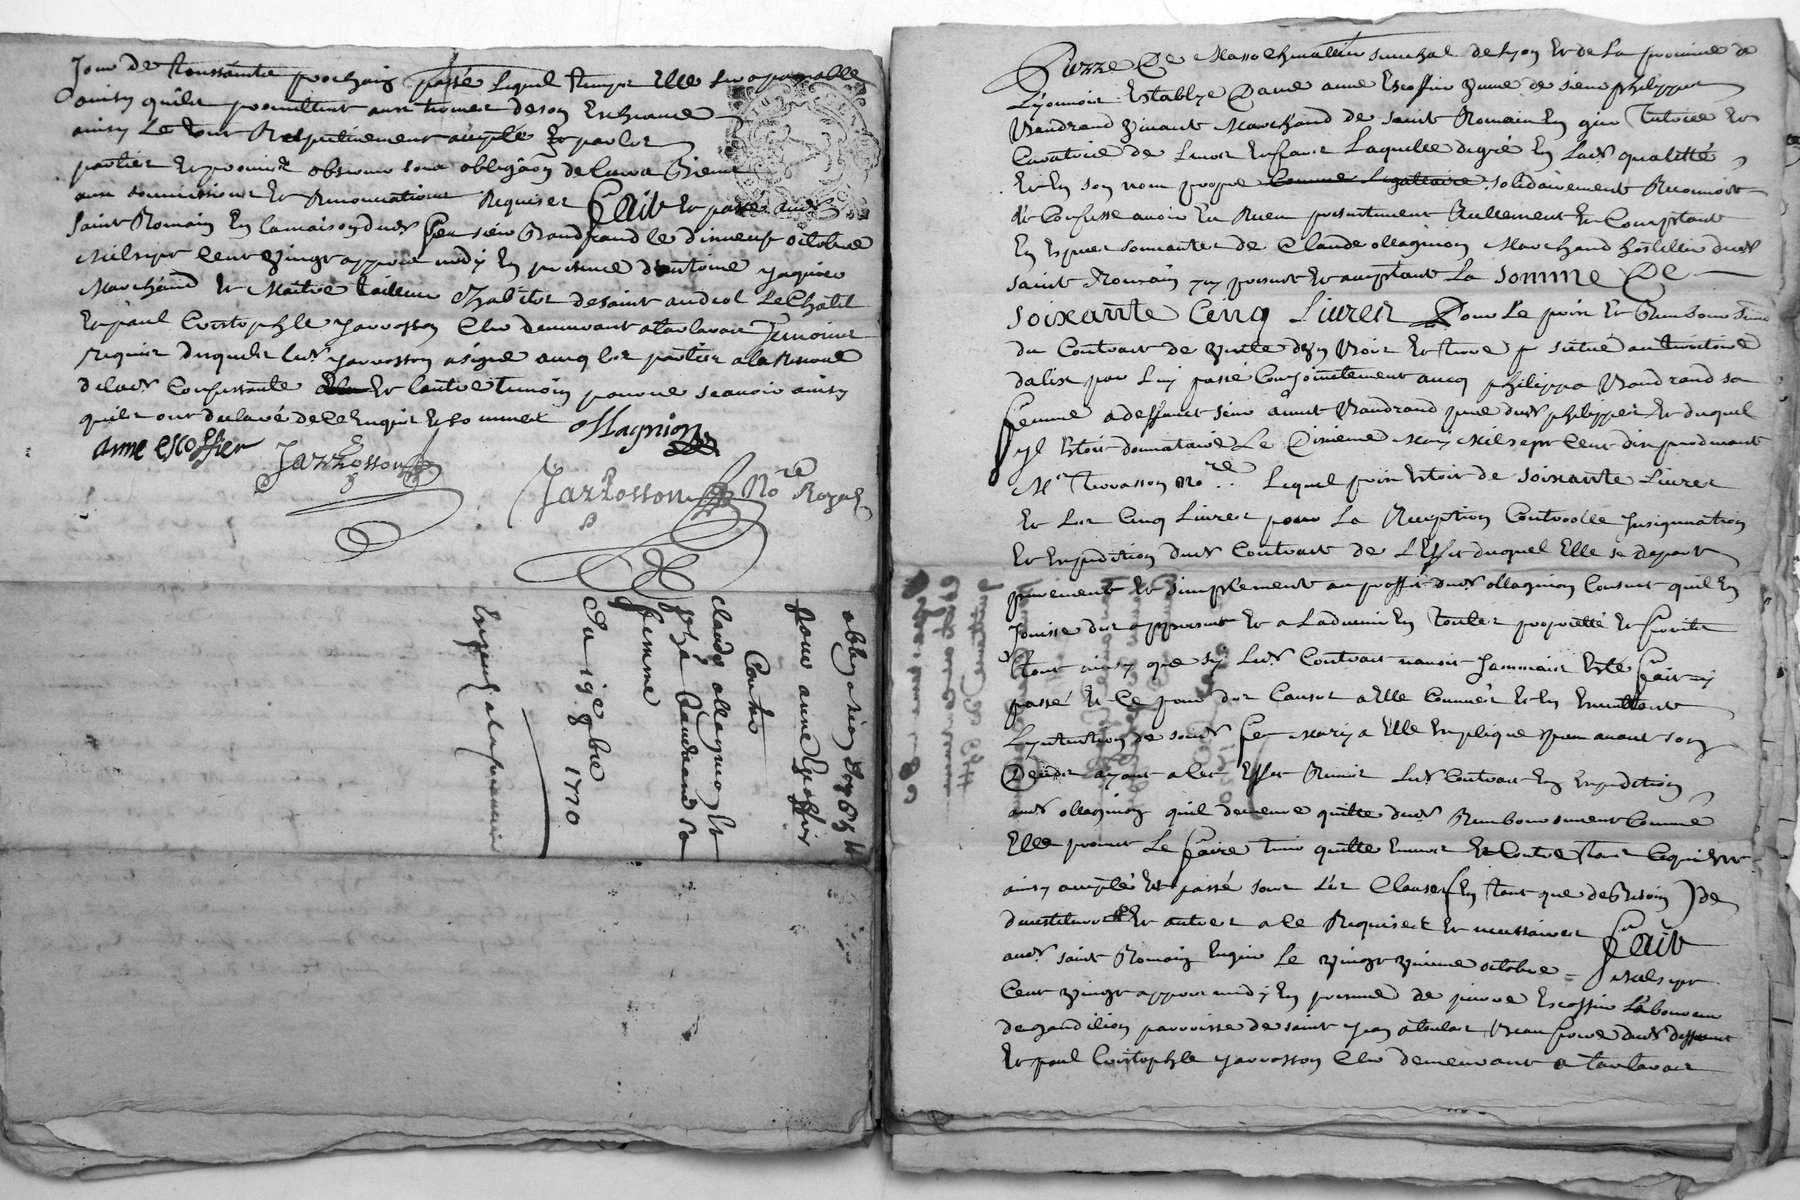 Jour de Toussainte prochain passé lequel temps Elle sera payable
ainsy quils promettent
ainsy Le tout Respectivement accepté Et par les
parties Et promis observer sous obligāon de leurs Biens
aux soumissions Et Renonciations Requises Fait Et passé aud.
Saint Romain En la maison dud. feu sieur Vandrand le dixneuf octobre
Milsept Cent Vingt appres midy En presence d'antoine Jaquier
Marchand Et Maitre tailleur habitant de saint andeol Le Chatel
Et paul Cristophle Jarrosson Clerc demeurant a tarlavais Temoins
Requis desquels led. Jarrosson a signé avec les parties a la Reserve
de lad. Confessante Et lautre temoin pour ne scavoir ainsy
quils ont declaré de Ce Enquis Et sommés Ollagnion
anne escoffier Jarrosson
Jarrosson No.re Royal
obligation de 65 ll
pour anne Escoffier
Contre
claude ollagnion Et
phza Vandrand sa
femme
Du 19e 8bre 1720
Expedié a la premiere
Pierre De Masso Chevallier senechal de Lyon Et de La province de
Lyonnois Establye Dame anne Escoffier Veufve de sieur philippe
Vandrand Vivant Marchand de saint Romain En gier Tutrice Et
Curatrice de Leurs Enfans Laquelle de gré En lad. qualitté
Et En son nom propre Comme Legattaire solidairement Reconnoit
Et Confesse avoir Eu Receu presentement Reellement Et Comptant
En Especes sonnantes de Claude ollagnion Marchand hostellier dud.
saint Romain Icy present Et acceptant La somme De
soixante Cinq Livres Pour Le prix Et Rembourse.nt
du Contract de Vente d'un Bois Et terre situé au territoire
dalix par Luy passé Conjoinctement avec philippa Vandrand sa
femme a deffunt sieur Vandrand pere dud. philippe Et duquel
yl Estoit donnataire Le Dixieme May Mil sept Cent dix pardevant
Mr. Terrasson no.re Lequel prix Estoit de soixante Livres
Et Les Cinq Livres pour La Reception Controolle Insignuation
Et Expedition dud. Contract de L'Effet duquel Elle se depart
purement Et simplement au proffit dud. ollagnion Consent quil En
Jouisse des appresent Et a Ladvenir En toutte proprietté Et fruits
tout ainsy que sy Led. Contract navoit Jammais Esté fait ny
passé Et Ce pour des Causes a Elle Connues Et En Executant
Lyntention de sond. feu Mary a Elle Expliquée peu avant son
Decedz ayant a Cet Effet Remis Led. Contract En Expedition
aud. ollagnion quil demeure quitte dud. Remboursement Comme
Elle promet Le faire tenir quitte Envers Et Contre tous Ce qui Est
ainsy accepté Et passé sous Les Clauses (En tant que de besoin) de
devestiture Et autres a ce Requises Et necessaires Fait
aud. saint Romain Engier Le Vingt Vnieme octobre = Mil sept
Cent Vingt appres midy En presence de pierre Escoffier Laboureur
de gandilion parroisse de saint Jean a toulas Beau frere dud. deffunt
Et paul Cristophle Jarrosson Clerc demeurant a tarlavais